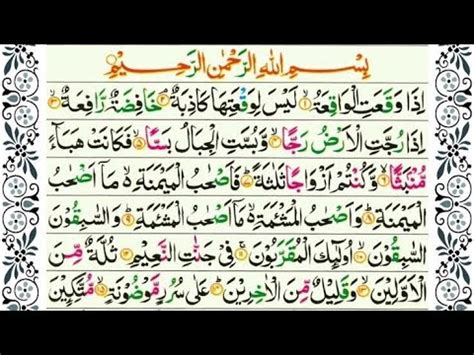 بِسْمِ اللهِ الرَّحْمٰنِ الرَّحِيْمِ
اِذَا وَقَعَتِ الْوَاقِعَةُ ۙ﴿۱﴾ لَيْسَ لِوَقْعَتِهَا كَاذِبَةٌ ۘ﴿۲﴾ خَافِضَةٌ رَّافِعَةٌ ۙ﴿۳﴾
اِذَا رُجَّتِ الْاَرْضُ رَجًّا ۙ﴿۴﴾ وَّبُسَّتِ الْجِبَالُ بَسًّا ۙ﴿۵﴾ فَكَانَتْ هَبَآءً
مُّنْۢبَثًّا ۙ﴿۶﴾ وَّكُنْتُمْ اَزْوَاجًا ثَلٰثَةً ؕ﴿۷﴾ فَاَصْحٰبُ الْمَيْمَنَةِ ۙ۬ مَاۤ اَصْحٰبُ
الْمَيْمَنَةِ ؕ﴿۸﴾ وَاَصْحٰبُ الْمَشْـَٔمَةِ ۙ۬ مَاۤ اَصْحٰبُ الْمَشْـَٔمَةِ ؕ﴿۹﴾ وَالسّٰبِقُوْنَ
السّٰبِقُوْنَ ﴿۱۰﴾ اُولٰٓئِكَ الْمُقَرَّبُوْنَ ﴿۱۱﴾ فِيْ جَنّٰتِ النَّعِيْمِ ﴿۱۲﴾ ثُلَّةٌ مِّنَ
الْاَوَّلِيْنَ ﴿۱۳﴾ وَقَلِيْلٌ مِّنَ الْاٰخِرِيْنَ ﴿۱۴﴾ عَلٰى سُرُرٍ مَّوْضُوْنَةٍ ﴿۱۵﴾ مُّتَّكِـِٕيْنَ